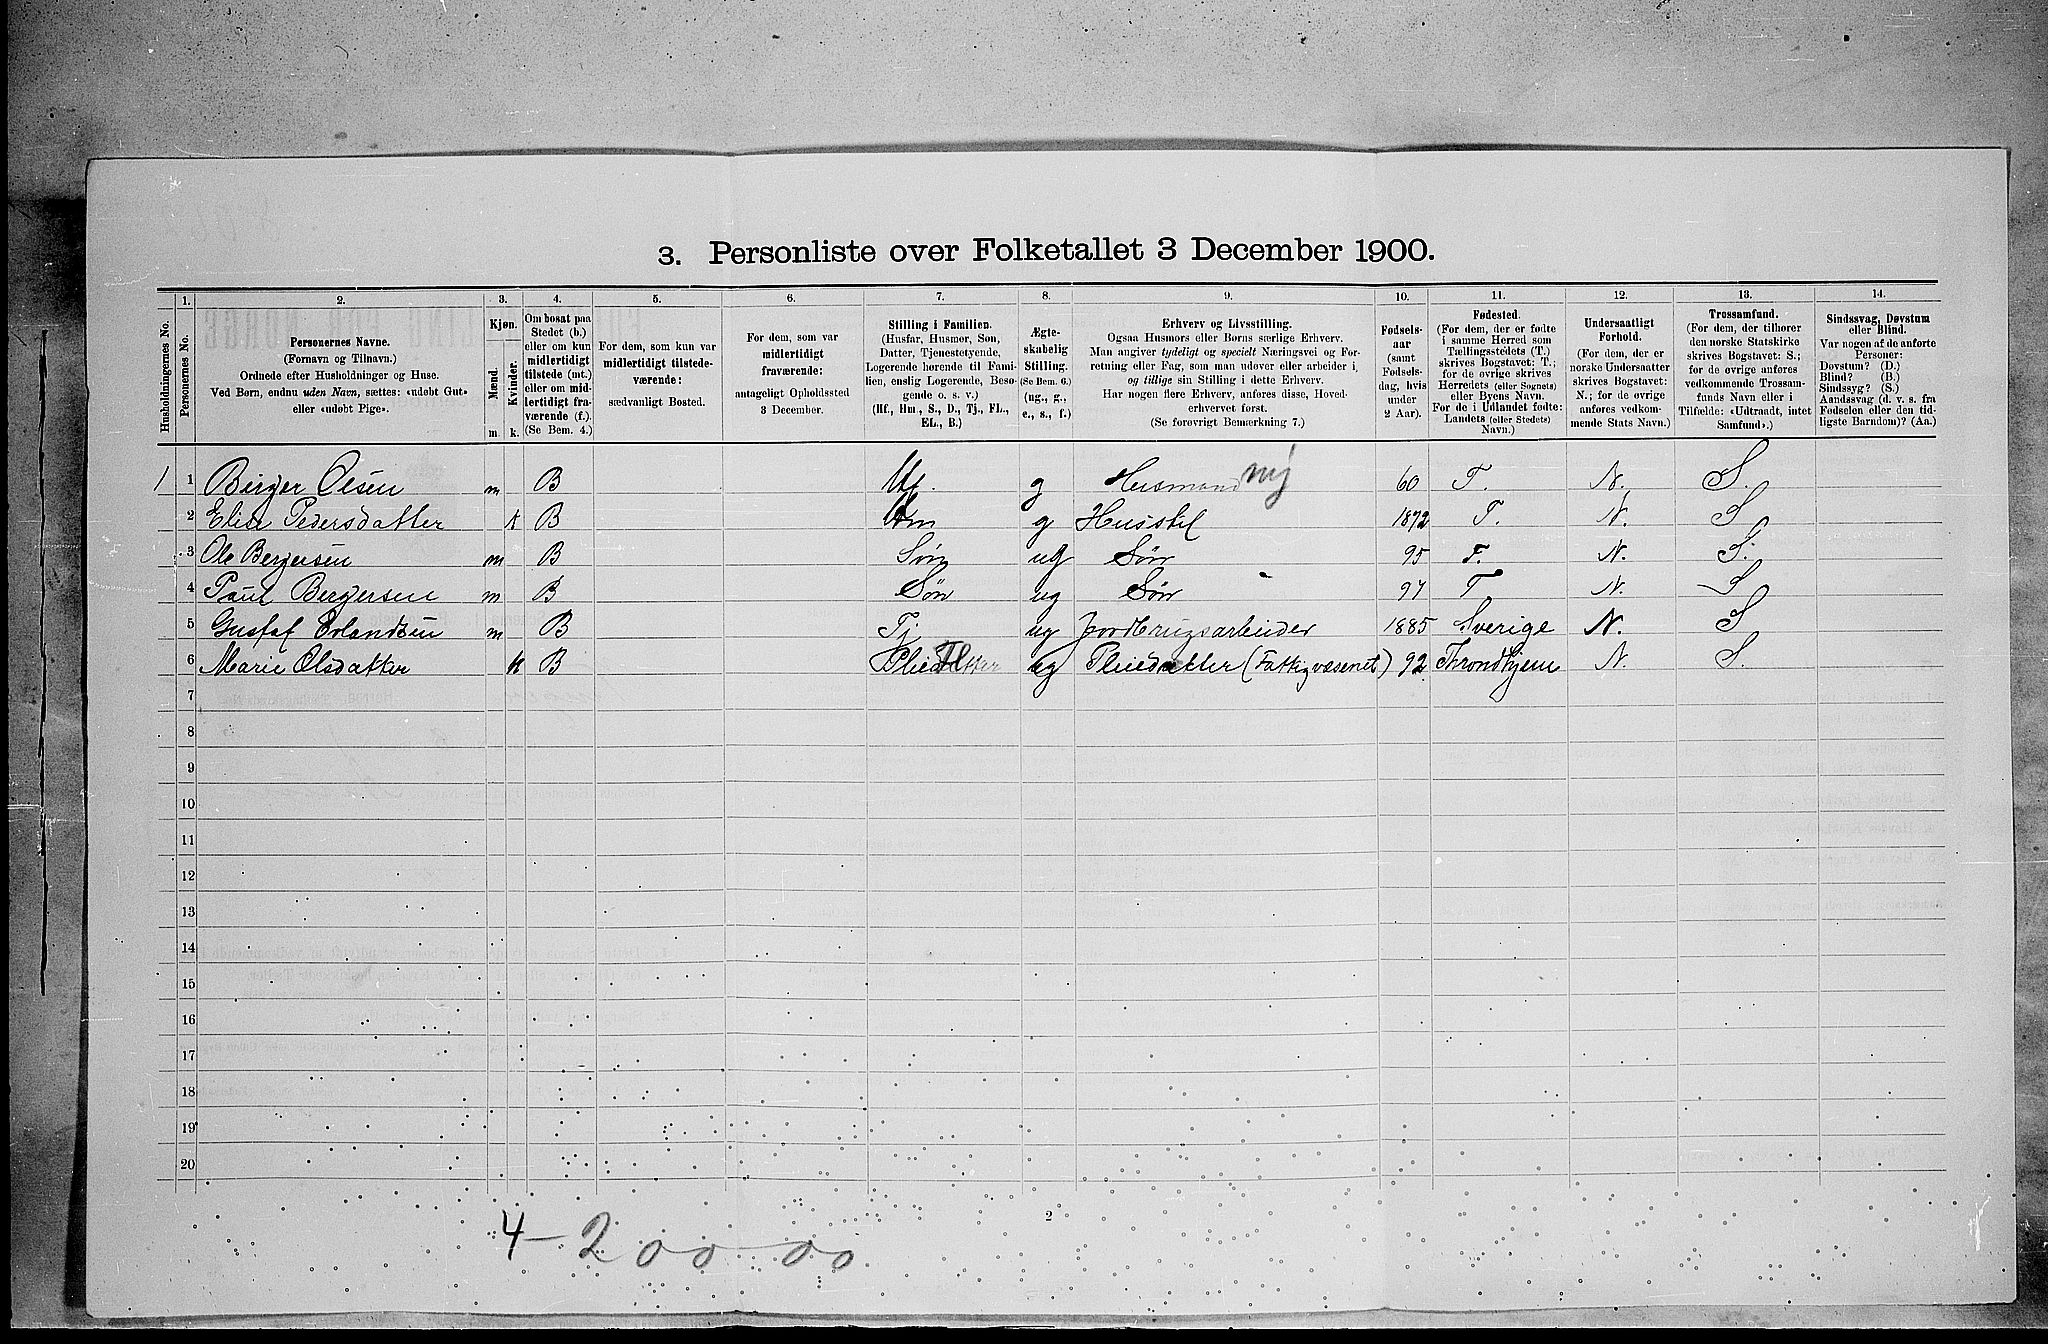 3. Personliste over Folketallet 3 December 1900.
1. 2. 3. 4. 5. 6. 7. 8. 9. 10. 11. 12. 13. 14.
Husholdningernes No.
Personernes No.
Personernes Navne.
(Fornavn og Tilnavn.)
Ordnede efter Husholdninger og Huse.
Ved Børn, endnu uden Navn, sættes: «udøbt Gut»
eller «udøbt Pige».
Kjøn.
Mænd.
Kvinder.
m. k.
Om bosat paa
Stedet (b.)
eller om kun
midlertidigt
tilstede (mt.)
eller om mid-
lertidigt fra-
værende (f.)
(Se Bem. 4.)
For dem, som kun var
midlertidigt tilstede-
værende:
sædvanligt Bosted.
For dem, som var
midlertidigt
fraværende:
antageligt Opholdssted
3 December.
Stilling i Familien.
(Husfar, Husmor, Søn,
Datter, Tjenestetyende,
Logerende hørende til Fami-
lien, enslig Logerende, Besø-
gende o. s. v.)
(Hf., Hm., S., D., Tj., FL.,
EL., B.)
Ægte-
skabelig
Stilling.
(Se Bem. 6.)
(ug., g.,
e., s., f.)
Erhverv og Livsstilling.
Ogsaa Husmors eller Børns særlige Erhverv.
Man angiver tydeligt og specielt Næringsvei og For-
retning eller Fag, som man udøver eller arbeider i,
og tillige sin Stilling i dette Erhverv.
Har nogen flere Erhverv, anføres disse, Hoved-
erhvervet først.
(Se forøvrigt Bemærkning 7.)
Fødsels-
aar
(samt
Fødsels-
dag, hvis
under
2 Aar).
Fødested.
(For dem, der er fødte
i samme Herred som
Tællingsstedets (T.)
skrives Bogstavet: T.;
for de øvrige skrives
Herredets (eller Sognets)
eller Byens Navn.
For de i Udlandet fødte:
Landets (eller Stedets)
Navn.)
Undersaatligt
Forhold.
(For dem, der er
norske Undersaatter
skrives Bogstavet:
N.; for de øvrige
anføres vedkom-
mende Stats Navn.)
Trossamfund.
(For dem, der tilhører
den norske Statskirke
skrives Bogstavet: S.;
for de øvrige anføres
vedkommende Trossam-
funds Navn eller i
Tilfælde: «Udtraadt, intet
Samfund».)
Sindssvag, Døvstum
eller Blind.
Var nogen af de anførte
Personer:
Døvstum? (D.)
Blind? (B.)
Sindssyg? (S.)
Aandssvag (d. v. s. fra
Fødselen eller den tid-
ligste Barndom)? (Aa.)
1 1 Birger Olsen m B Hf. g Husmand nij 60 T. N. S.
2 Elise Pedersdatter k B Hm g Husstel 1872 T. N. S
3 Ole Bergersen m B Søn ug Søn 95 T. N. S.
4 Paul Bergersen m B Søn ug Søn " 97 T N. S
5 Gustaf Erlandsen m B Tj ug Jordbrugsarbeider 1885 Sverige N. S
6 Marie Olsdatter k B Pleiedatter ug Pleiedatter (Fattigvæsenet) 92 Throndhjem N. S.
7
8
9
10
11
12
13
14
15
16
17
18
19
20
2
4 - 200 - 00